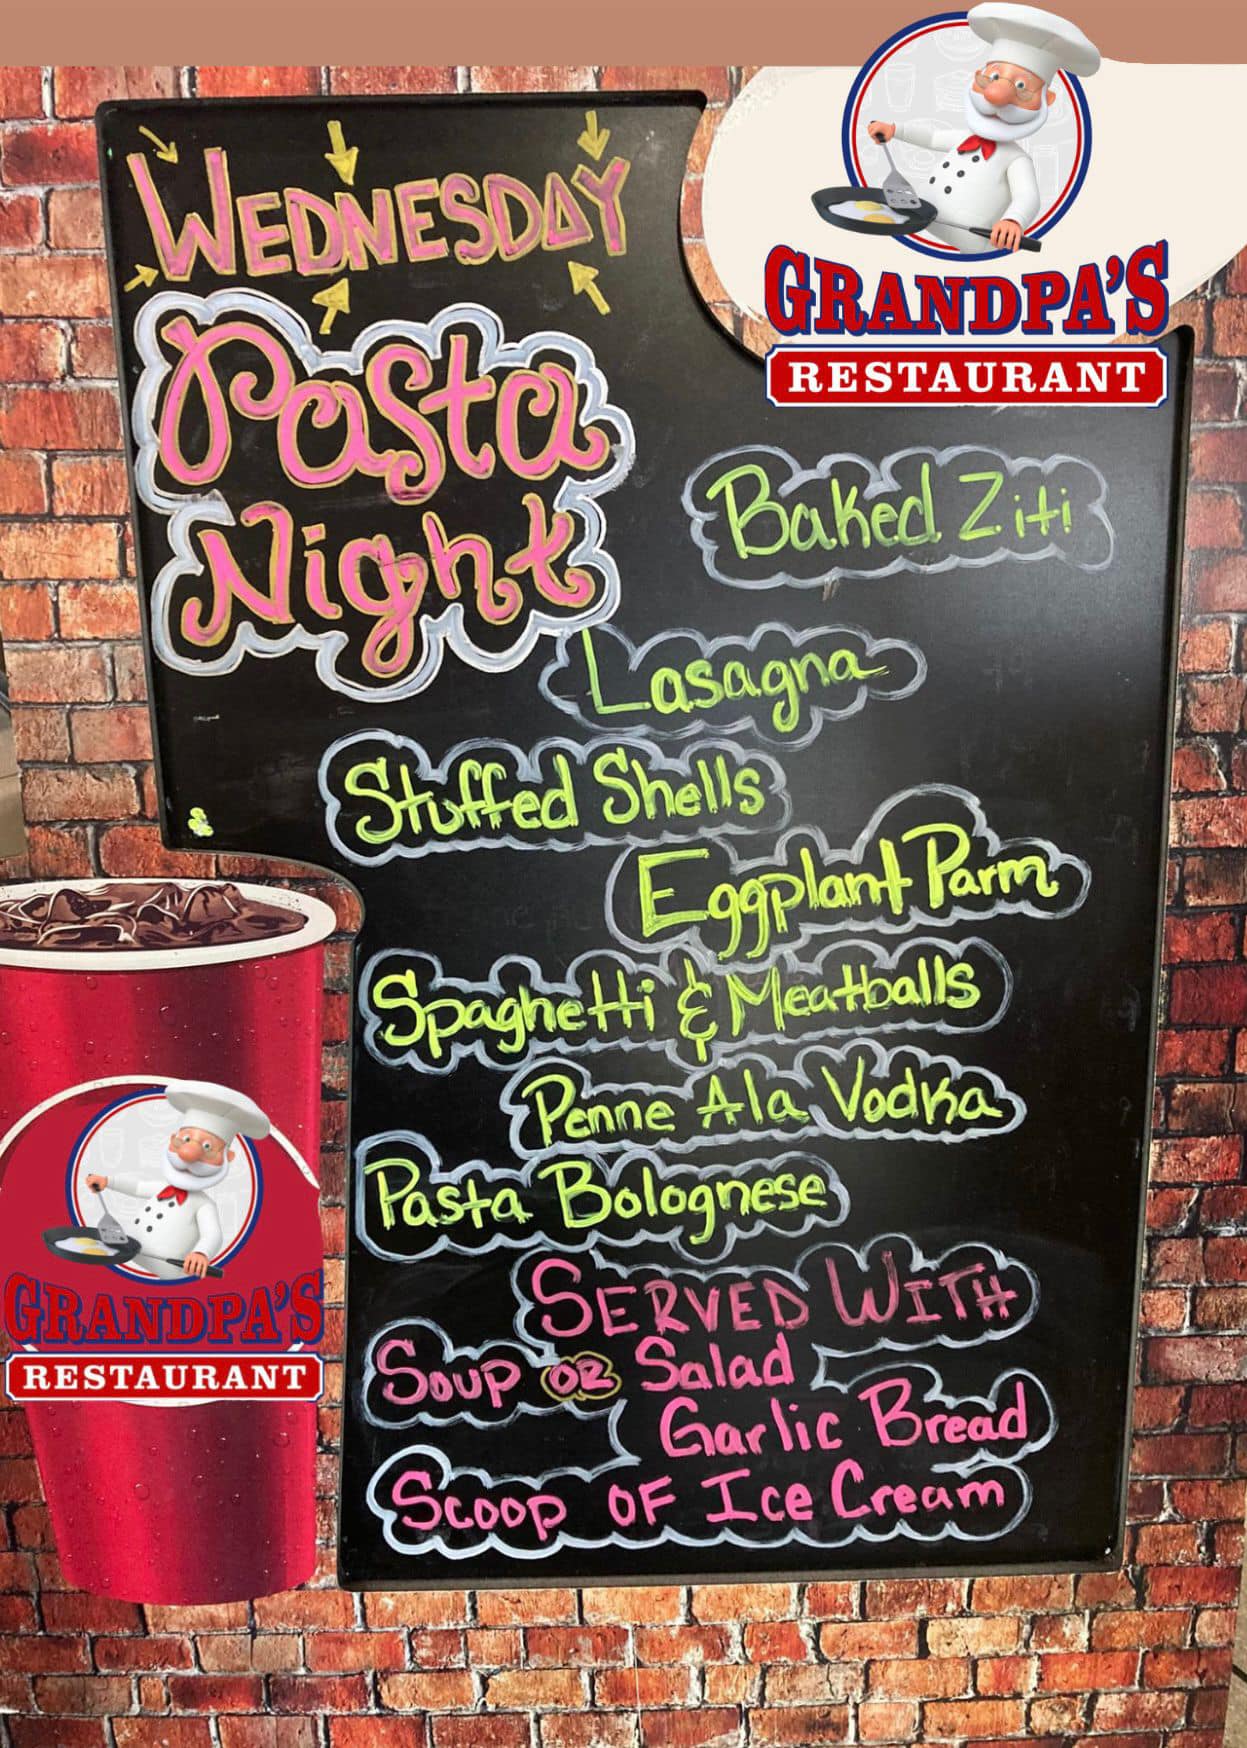 GRANDPA'S
RESTAURANT
WEDNESDAY
Pasta
Night
Baked Ziti
Lasagna
Stuffed Shells
Eggplant Parm
Spaghetti & Meatballs
Penne Ala Vodka
Pasta Bolognese
SERVED WITH
Soup OR Salad
Garlic Bread
Scoop OF Ice Cream
GRANDPA'S
RESTAURANT